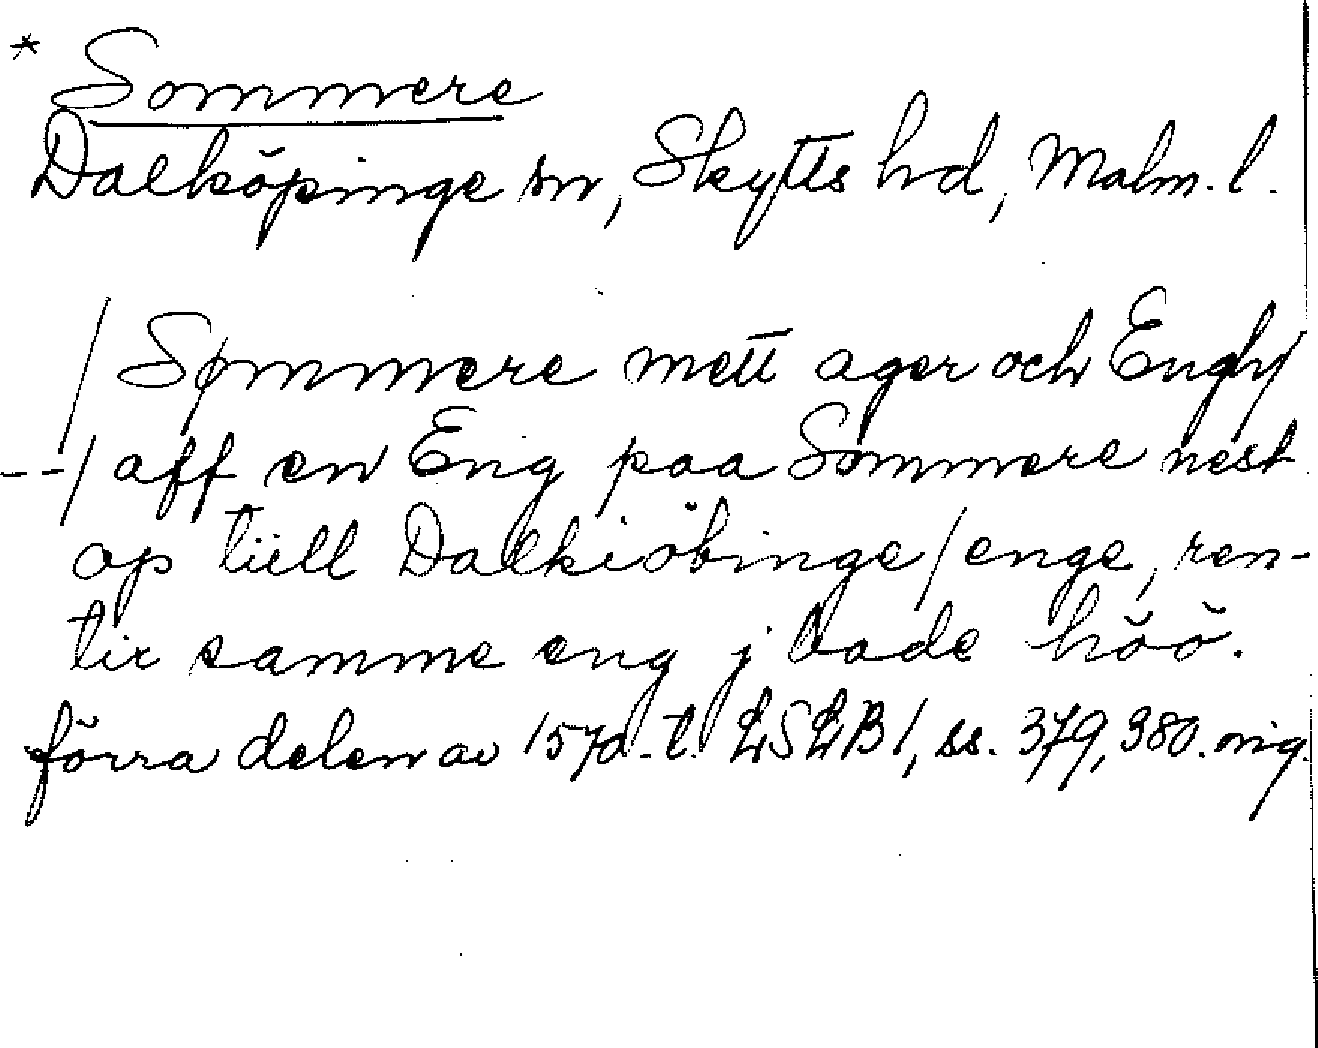 * Sommere
Dalköpinge sn, Skytts hd, Malm. l.
/ Sømmere mett ager och Engh/
--/ aff en Eng paa Sommere nest
op tiill Dalkiöbinge / enge, ren-
tir samme eng j lade höö.
förra delen av 1570-t. LSLB 1, ss. 379, 380. orig.